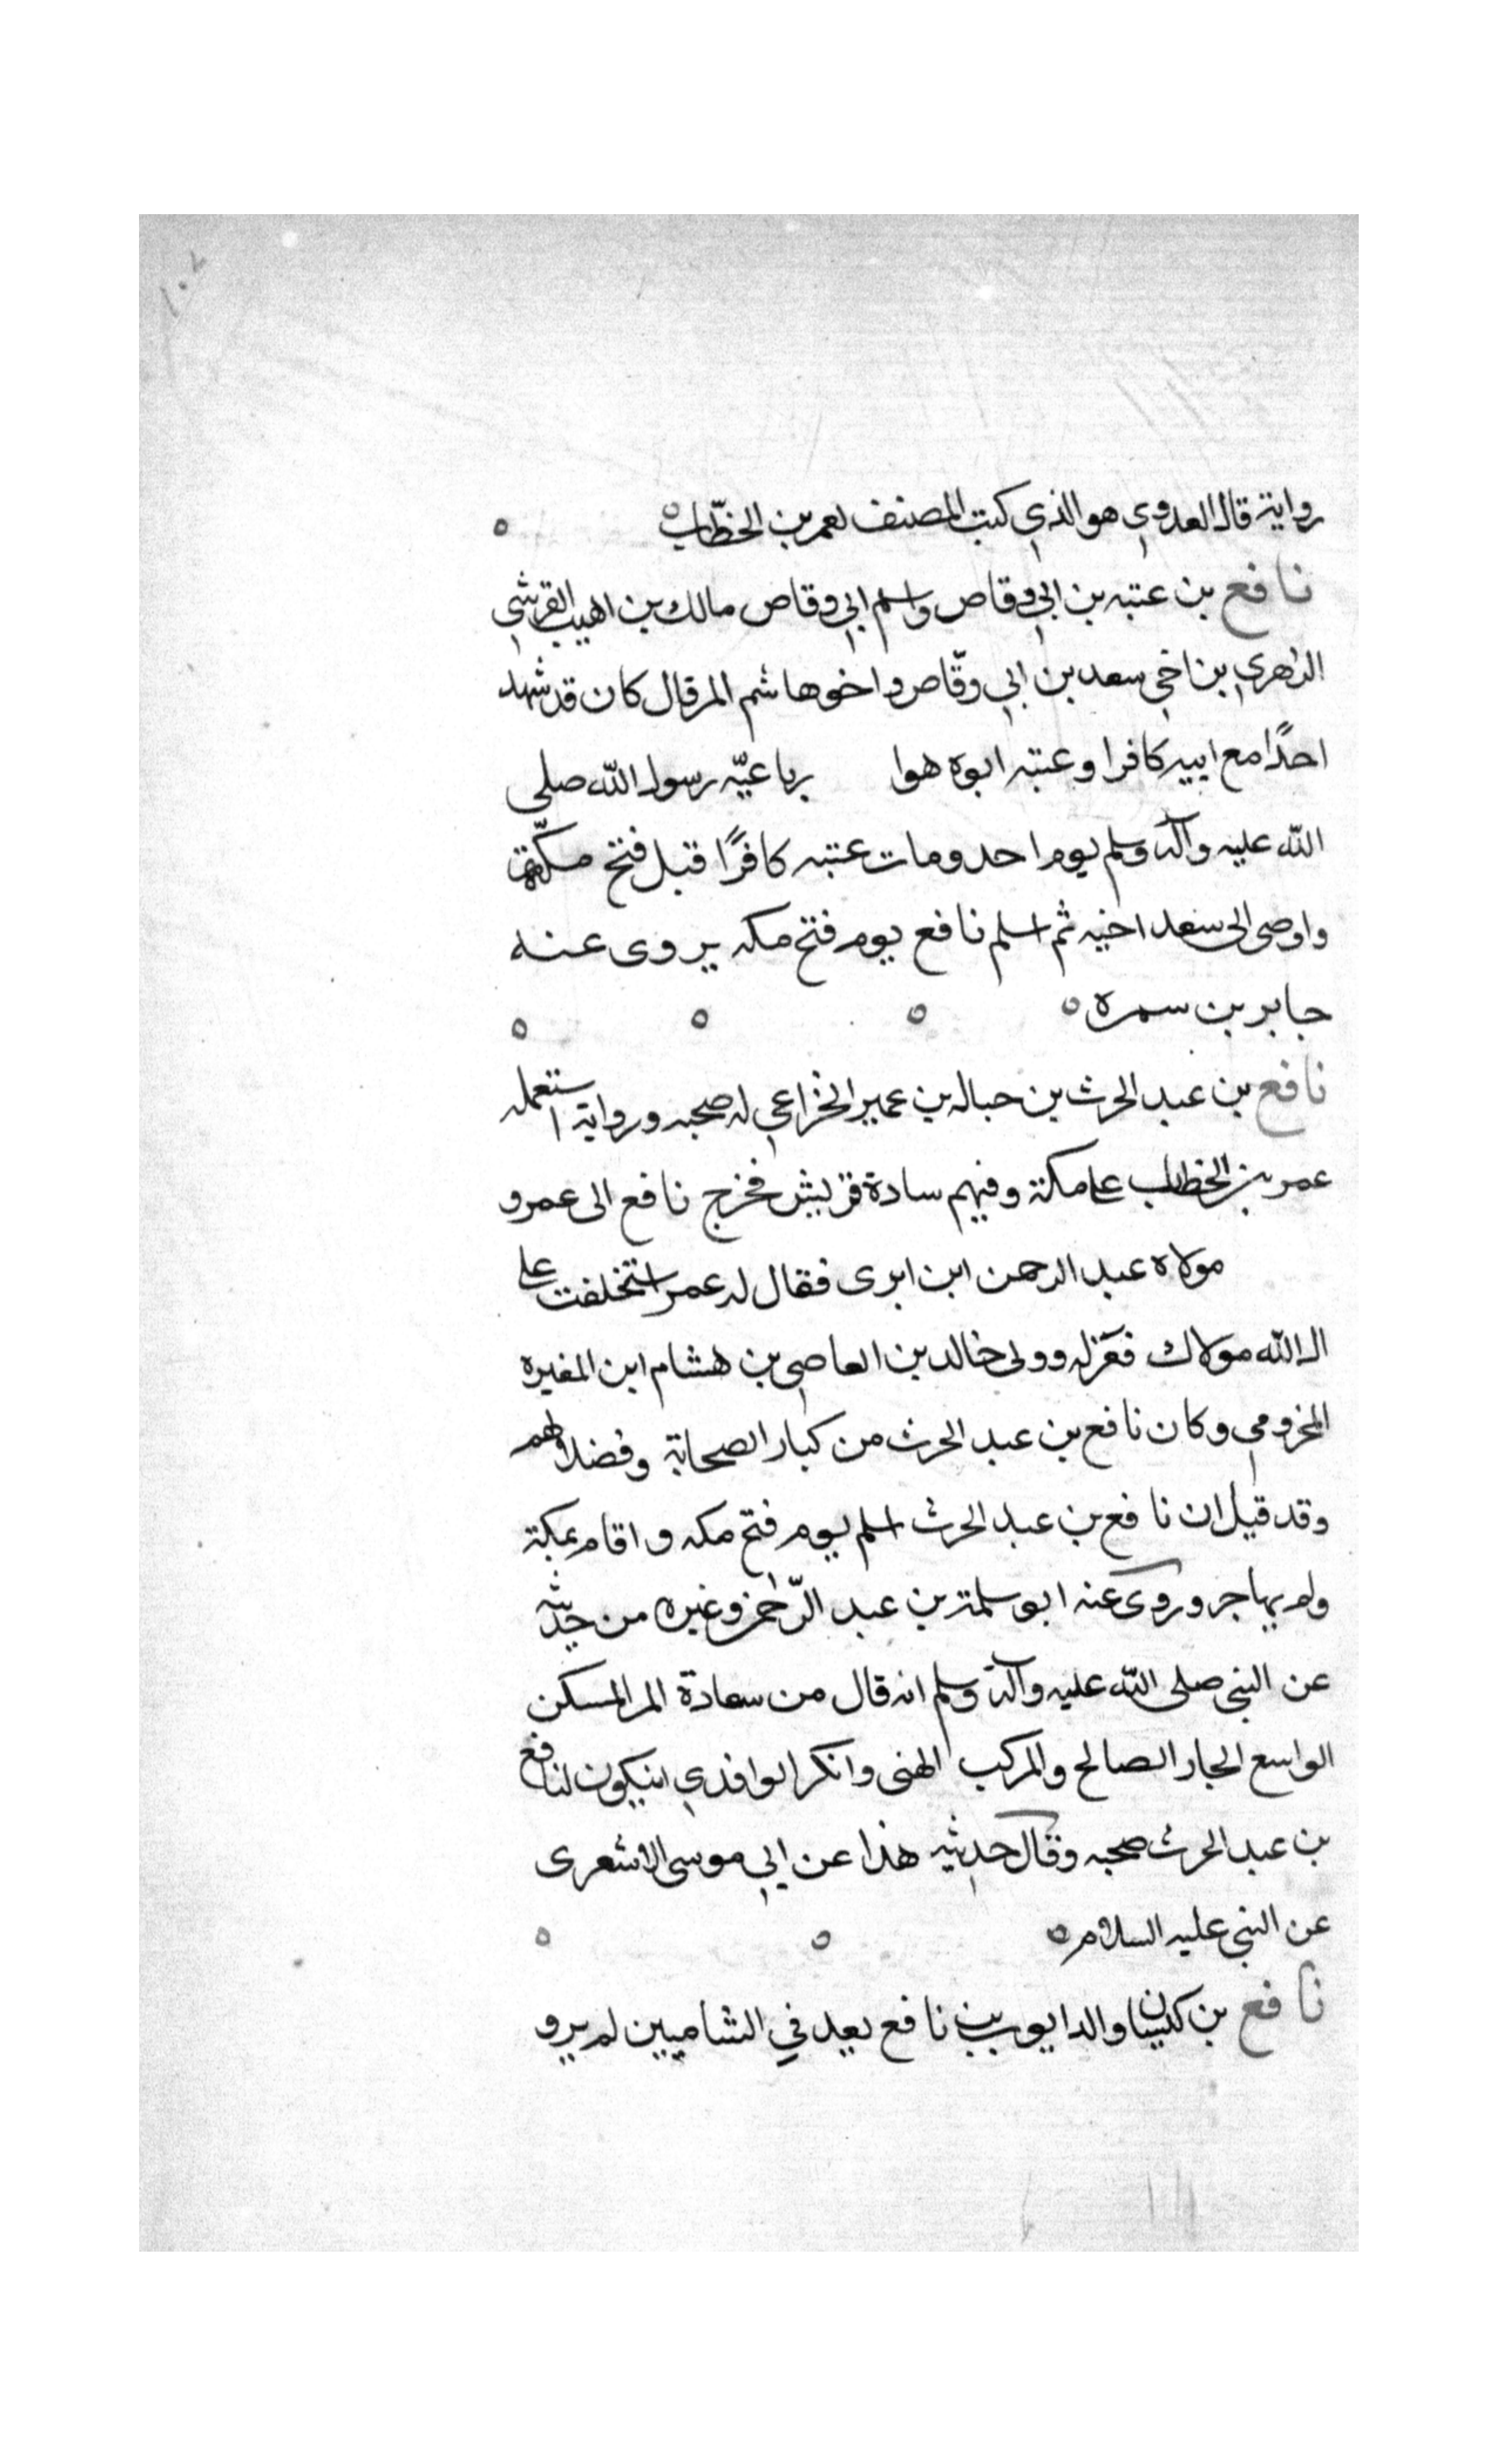 ١٠٢
رواية قال العدوي هو الذي كتب المصنف لعمر بن الخطّاب
نافع بن عتبه بن ابي وقاص واسم ابي وقاص مالك بن اهيب القرشي
الزهري بن اخي سعد بن ابي وقّاص واخوها شم المرقال كان قد شهد
احدًا مع ابيه كافرا وعتبه ابوه هوا رباعيّه رسول الله صلى
الله عليه وآله وسلم يوم احد ومات عتبه كافرًا قبل فتح مكّة
واوصى الى سعد اخيه ثم اسلم نافع يوم فتح مكه يروى عنه
جابر بن سمره
نافع بن عبد الحرث بن حباله بن عمير الخزاعي له صحبه ورواية استعمله
عمر بن الخطاب على مكة وفيهم سادة قريش فخرج نافع الى عمر و
مولاه عبد الرحمن ابن ابرى فقال له عمر استخلفت على
ال الله مولاك فعزله وولى خالد بن العاصي بن هشام ابن المغيره
المخزومي وكان نافع بن عبد الحرث من كبار الصحابة وفضلاهم
وقد قيل ان نافع بن عبد الحرث اسلم يوم فتح مكه واقام بمكة
ولم يهاجر وروى عنه ابو سلمة بن عبد الرّحمن وغيره من حديثه
عن النبي صلى الله عليه وآله وسلم انه قال من سعادة المر المسكن
الواسع الجار الصالح والمركب الهنى وانكر الوافدي ان يكون لنافع
بن عبد الحرث صحبه وقال حديثه هذا عن ابي موسى الاشعرى
عن النبي عليه السلام
نافع بن كيسان والد ايوب بن نافع يعد في الشاميين لم يرو